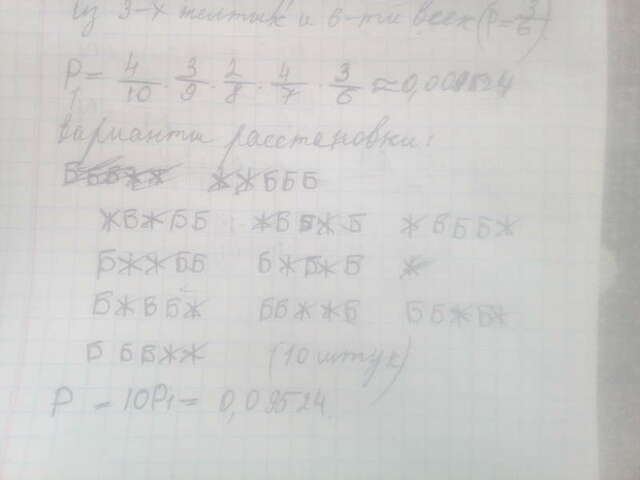 из 3-х желтых и 6-ти всех (P=3/6)
P₁ = 4/10 · 3/9 · 2/8 · 4/7 · 3/6 ≈ 0,009524
варианты расстановки:
ЖЖБББ
ЖБЖББ ЖББЖБ ЖБББЖ
БЖЖББ БЖБЖБ
БЖББЖ ББЖЖБ ББЖБЖ
БББЖЖ (10 штук)
P = 10P₁ = 0,09524